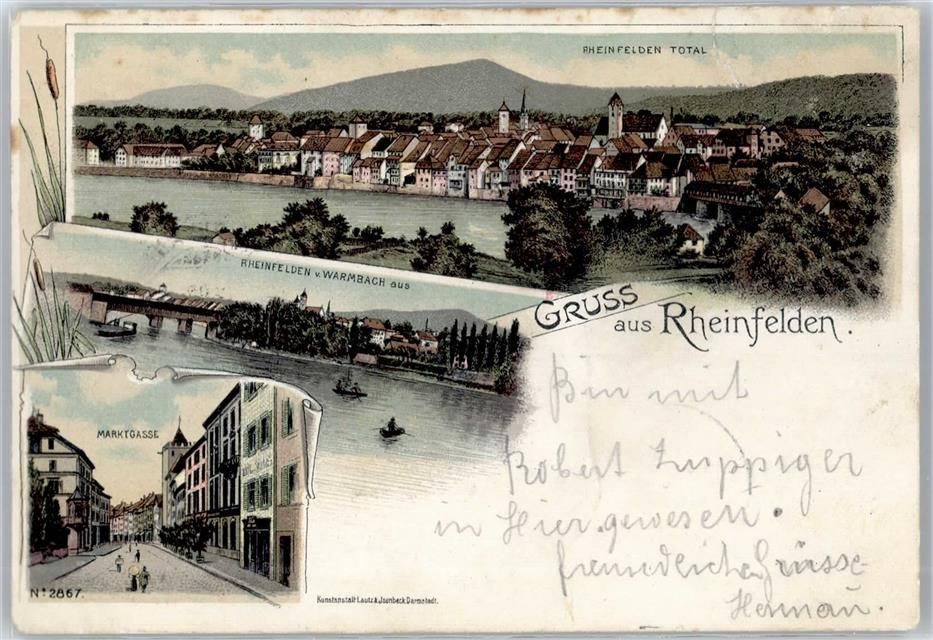 RHEINFELDEN TOTAL
RHEINFELDEN v. WARMBACH aus
GRUSS
aus Rheinfelden.
MARKTGASSE
Bin mit
Robert Zuppiger
in Hier gewesen.
freundliche Grüsse
Herman.
No 2867.
Kunstanstalt Lautz & Jsenbeck, Darmstadt.